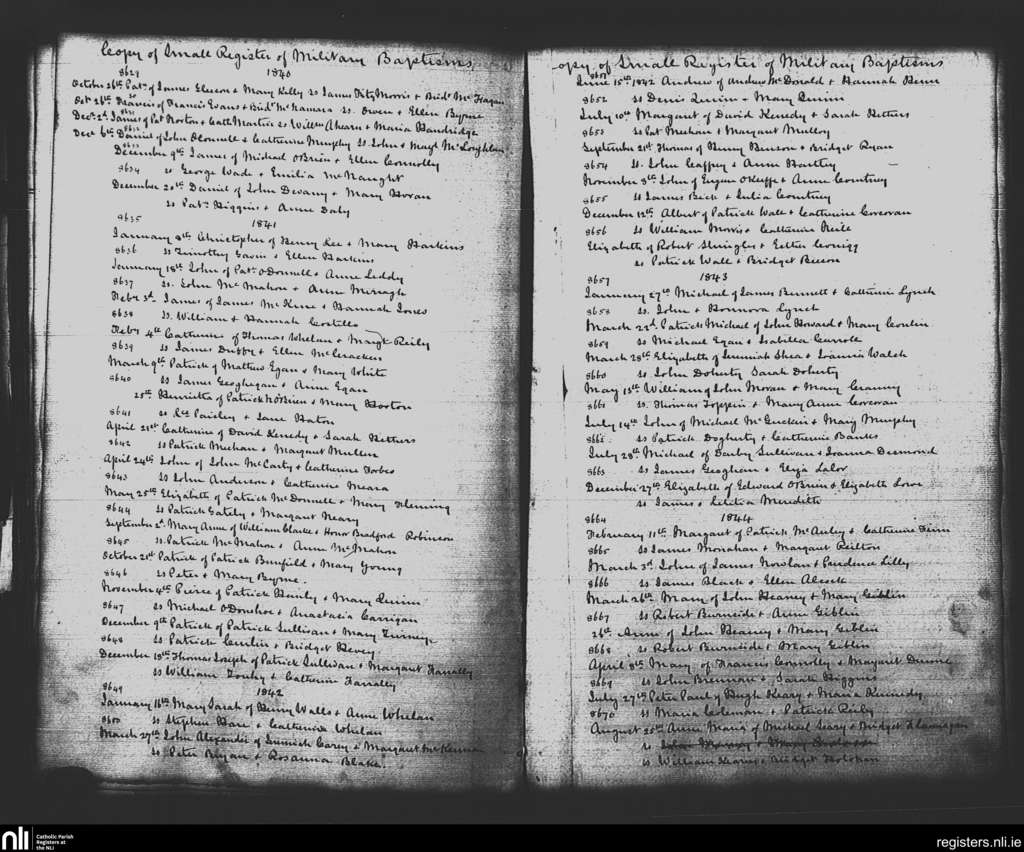 Copy of Small Register of Military Baptisms
8629 1840
October 26th Patk of James & Mary Kelly Ss James FitzMorris & Bidt Mc
30
Oct 26th Francis of Francis Evans & Bidt McNamara Ss. Owen & Ellen Byrne
8631
Decr 2d James of Pat Norton & Cath Martin Ss Willm Ahearn & Maria Handridge
8632
Decr 6th Daniel of John OConnell & Catherine Murphy Ss. John & Margt McLoughlin
8633
December 9th James of Michael OBrien & Ellen Connolly
8634 Ss George Wade & Emilia McNaught
December 20th Daniel of John Devany & Mary Horan
Ss Patk Higgins & Anne Daly
8635 1841
January 8th Christopher of Henry Lee & Mary Harkins
8636 Ss Timothy Gavin & Ellen Harkins
January 18th John of Patk ODonnell & Anne Leddy
8637 Ss. John McMahon & Anne
Feby 3d James of James McKene & Hannah Jones
8638 Ss. William & Hannah Costillo
Feby 4th Catherine of Thomas Whelan & Margt Reily
8639 Ss James & Ellen McCracken
March 9th Patrick of Mathew Egan & Mary White
8640 Ss James Geoghegan & Anne Egan
25th Henrietta of Patrick OBrien & Mary Horton
8641 Ss Paisley & Jane Haton
April 21st Catherine of David Kenedy & Sarah Hethers
8642 Ss Patrick Meehan & Margaret Mullen
April 24th John of John McCarty & Catherine Forbes
8643 Ss John Anderson & Catherine Meara
May 25th Elizabeth of Patrick McDonnell & Mary Fleming
8644 Ss Patrick Gately & Margaret Neary
September 2d Mary Anne of William Clarke & Honor Bradford Robinson
8645 Ss. Patrick McMahon & Anne McMahon
October 21st Patrick of Patrick Bunfield & Mary Young
8646 Ss Peter & Mary Byrne.
November 4th Pierce of Patrick Hanly & Mary Quinn
8647 Ss Michael ODonohoe & Anastasia Carrigan
December 9th Patrick of Patrick Sullivan & Mary Turney
8648 Ss Patrick & Bridget Hevey
December 18th Thomas Joseph of Patrick Sullivan & Margaret Farrally
Ss William & Catherine Farrally
8649 1842
January 16th Mary Sarah of Henry Walls & Anne Whelan
8650 Ss Stephen Hare & Catherine Whelan
March 27th John Alexander of Jeremiah Carey & Margaret McKenna
Ss Peter Bryan & Rosanna Blake
opy of Small Register of Military Baptisms
8651
June 15th 1842 Andrew of Andrew McDonald & Hannah
8652 Ss Denis Quinn & Mary Quinn
July 10th Margaret of David Kenedy & Sarah Hethers
8653 Ss Pat Meehan & Margaret Mulloy
September 21st Thomas of Henry Benson & Bridget Ryan
8654 Ss. John Gaffney & Anne Hartley
November 8th John of Eugene OKeeffe & Anne Courtney
8655 Ss James Beck & Julia Courtney
December 12th Albert of Patrick Wall & Catherine Corcoran
8656 Ss William Morris & Catherine Neill
Elizabeth of Robert & Esther
Ss Patrick Wall & Bridget
8657 1843
January 27th Michael of James Bennett & Catherine Lynch
8658 Ss. John & Honnora Lynch
March 22d Patrick Michael of John Howard & Mary Conlin
8659 Ss Michael Egan & Isabella Carroll
March 28th Elizabeth of Jeremiah Shea & Joanna Walsh
8660 Ss John Doherty Sarah Doherty
May 15th William of John Moran & Mary Cranny
8661 Ss. Thomas Toppin & Mary Anne Corcoran
July 14th John of Michael McGuckin & Mary Murphy
8662 Ss Patrick Dogherty & Catherine Banks
July 28th Michael of Darby Sullivan & Joanna Desmond
8663 Ss James Geoghean & Eliza Lalor
December 27th Elizabeth of Edward OBrien & Elizabeth Love
Ss James & Letitia Meredith
8664 1844
February 11th Margaret of Patrick McAuley & Catherine
8665 Ss James Monahan & Margaret Reilton
March 3d John of James Nowlan & Prudence Lilly
8666 Ss James Black & Ellen Alcock
March 26th Mary of John Heaney & Mary Giblin
8667 Ss Robert Burnside & Anne Giblin
26th Anne of John Heaney & Mary Giblin
8668 Ss Robert Burnside & Mary Giblin
April 8th Mary of Francis Connolly & Margaret
8669 Ss John Brennan & Sarah Higgins
July 27th Peter Paul of Hugh Keary & Maria Kennedy
8670 Ss Maria Coleman & Patrick Reily
August 25th Anne Maria of Michael Geary & Bridget Flannigan
Ss
Ss William Kearns & Bridget Holohan
nli
Catholic Parish
Registers at
the NLI
registers.nli.ie